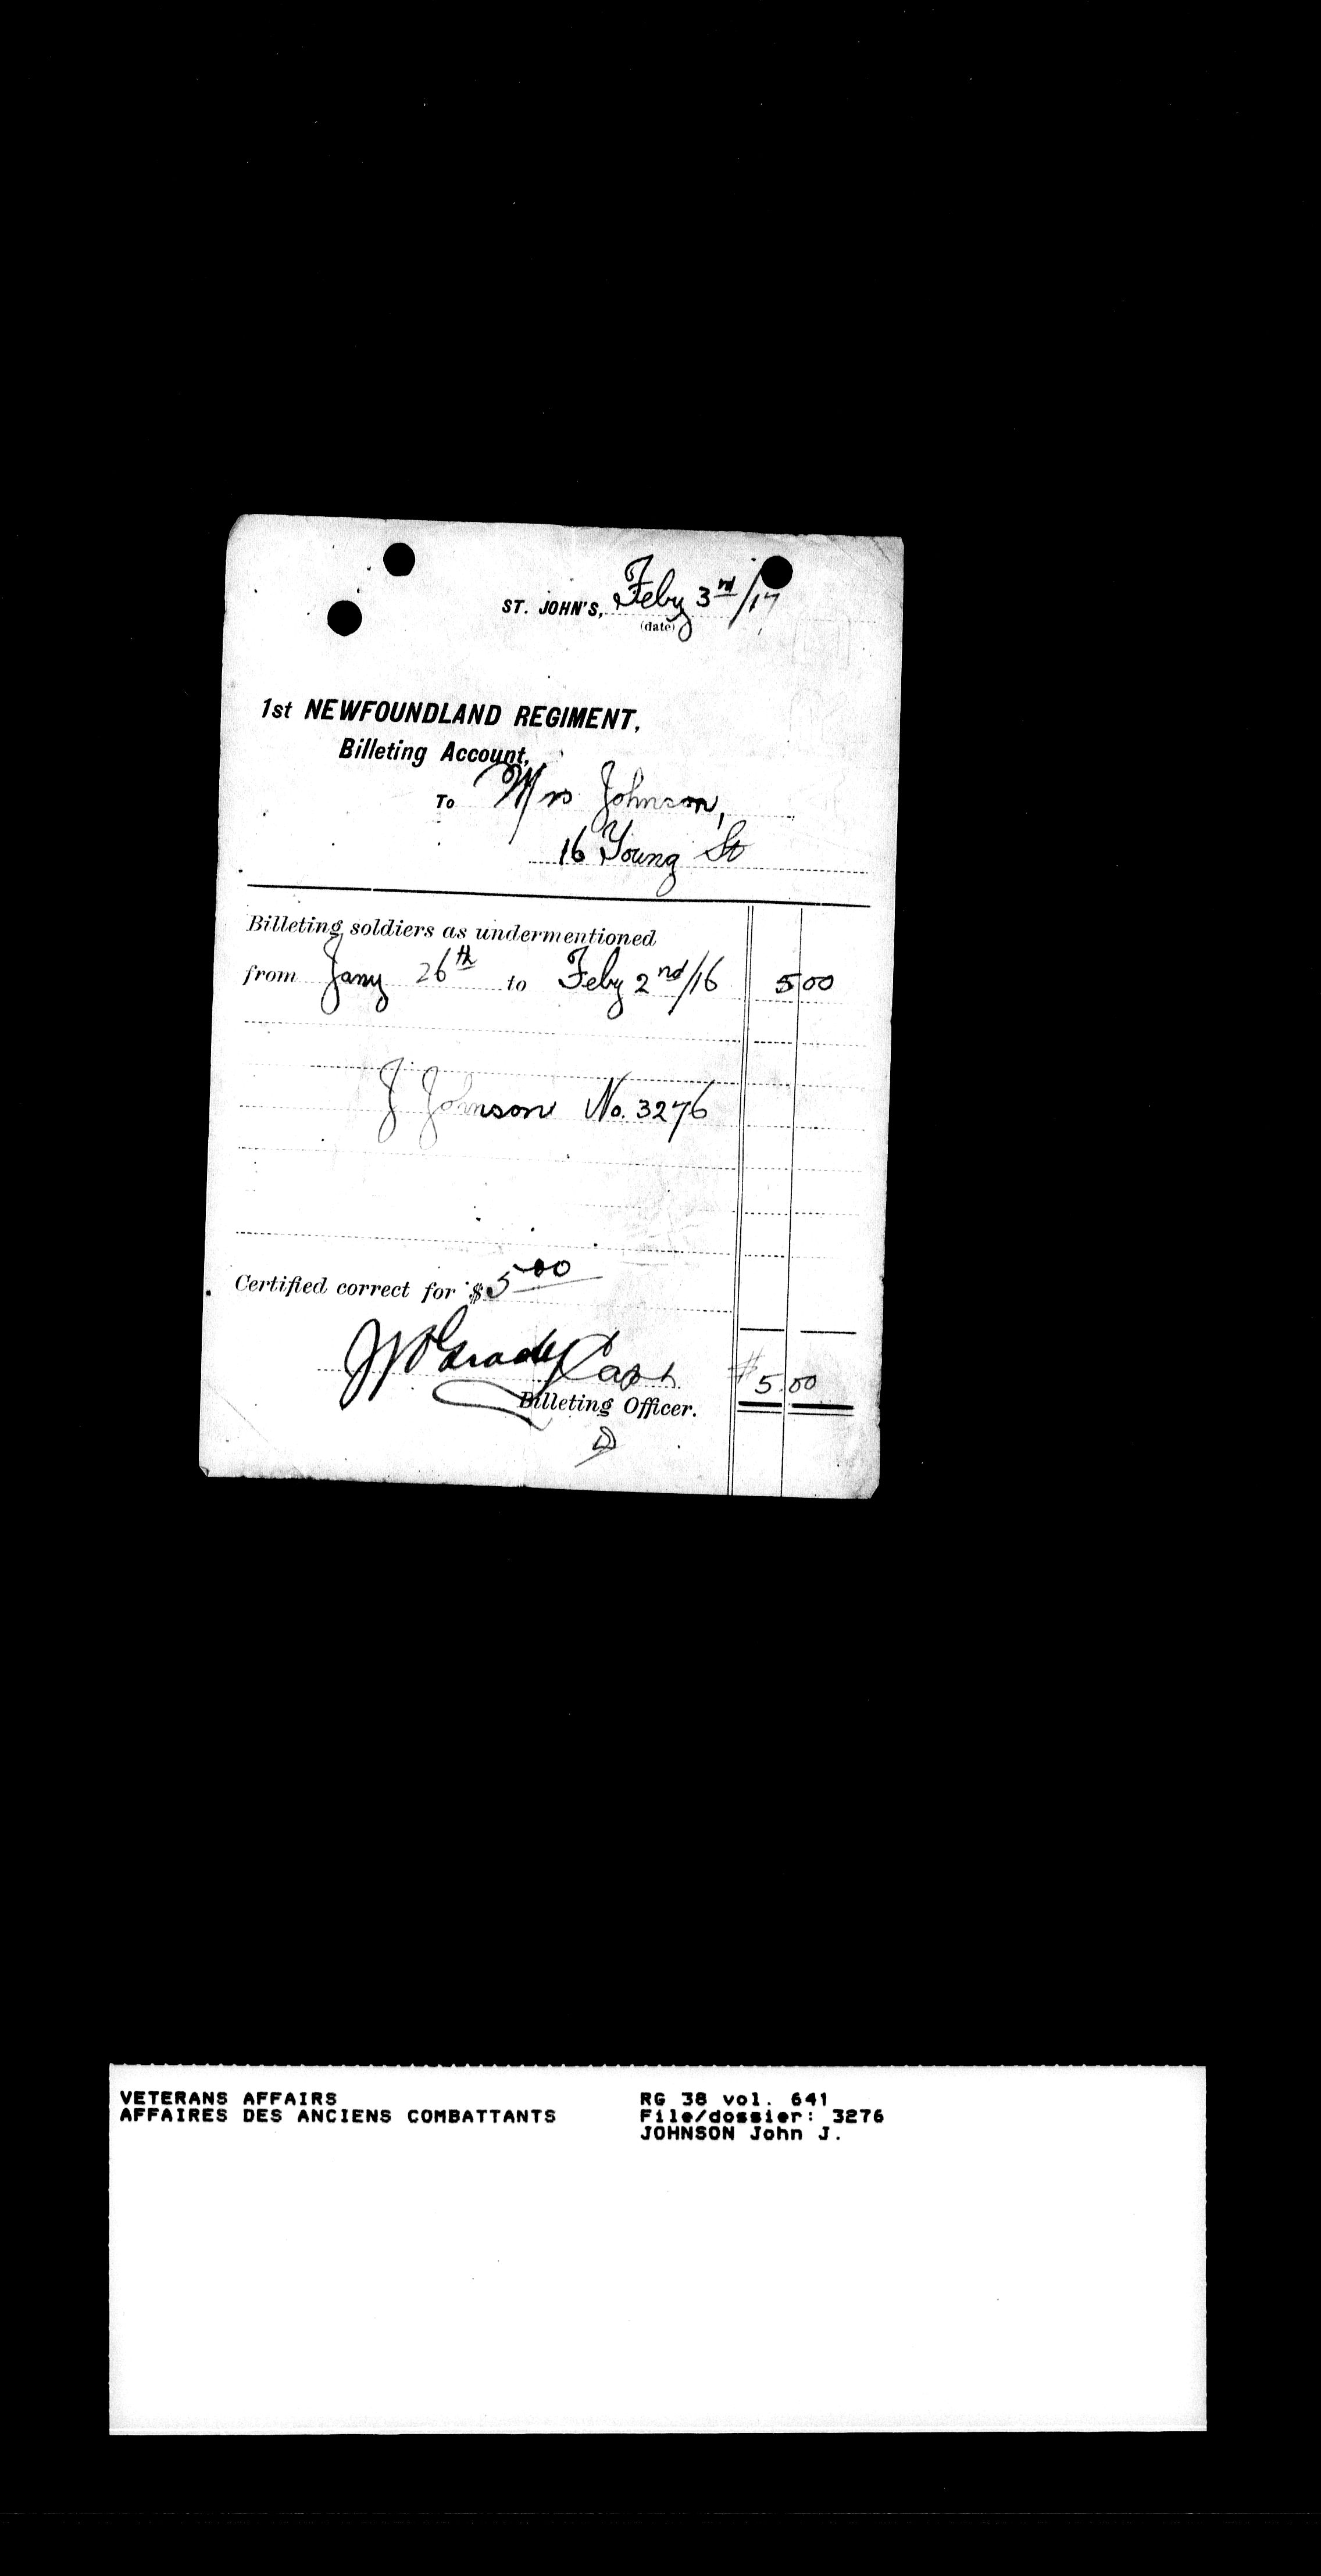 ST. JOHN'S, Feby 3rd/17
(date)
1st NEWFOUNDLAND REGIMENT,
Billeting Account,
To Mrs Johnson,
16 Young St
Billeting soldiers as undermentioned
from Jany 26th to Feby 2nd/16 5 00
J Johnson No. 3276
Certified correct for $5 00
Capt $5.00
Billeting Officer.
VETERANS AFFAIRS RG 38 vol. 641
AFFAIRES DES ANCIENS COMBATTANTS File/dossier: 3276
JOHNSON John J.